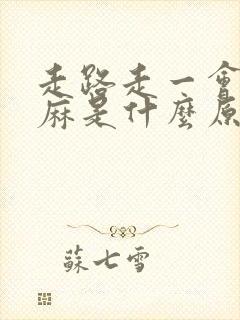 走路走一會
麻是什麼原
蘇七雪